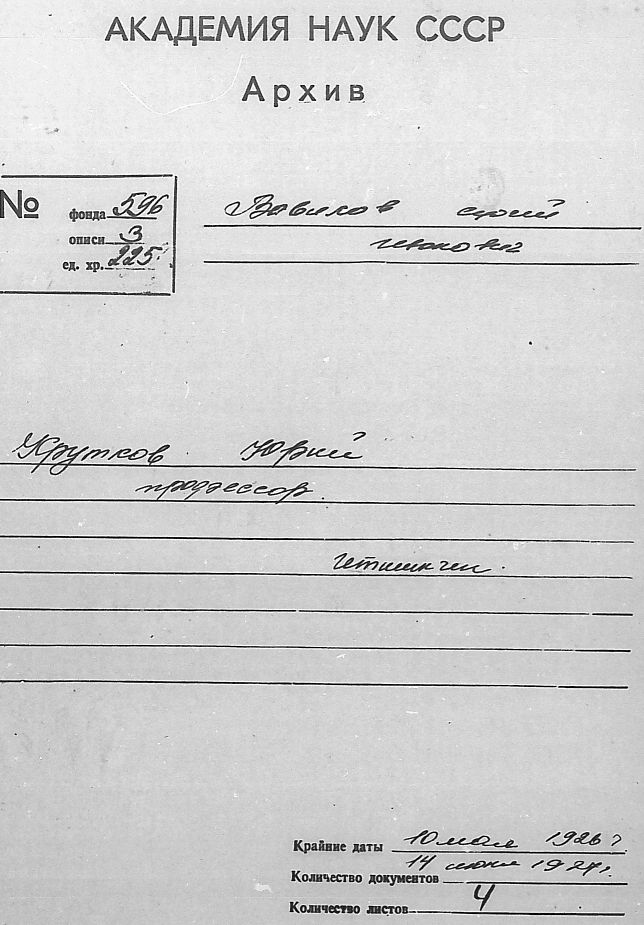 АКАДЕМИЯ НАУК СССР
Архив
№
фонда 596
описи 3
ед. хр. 225
Вавилов
Крутков Юрий
профессор
Крайние даты 10 мая 1926 г.
14 1927 г.
Количество документов
Количество листов 4